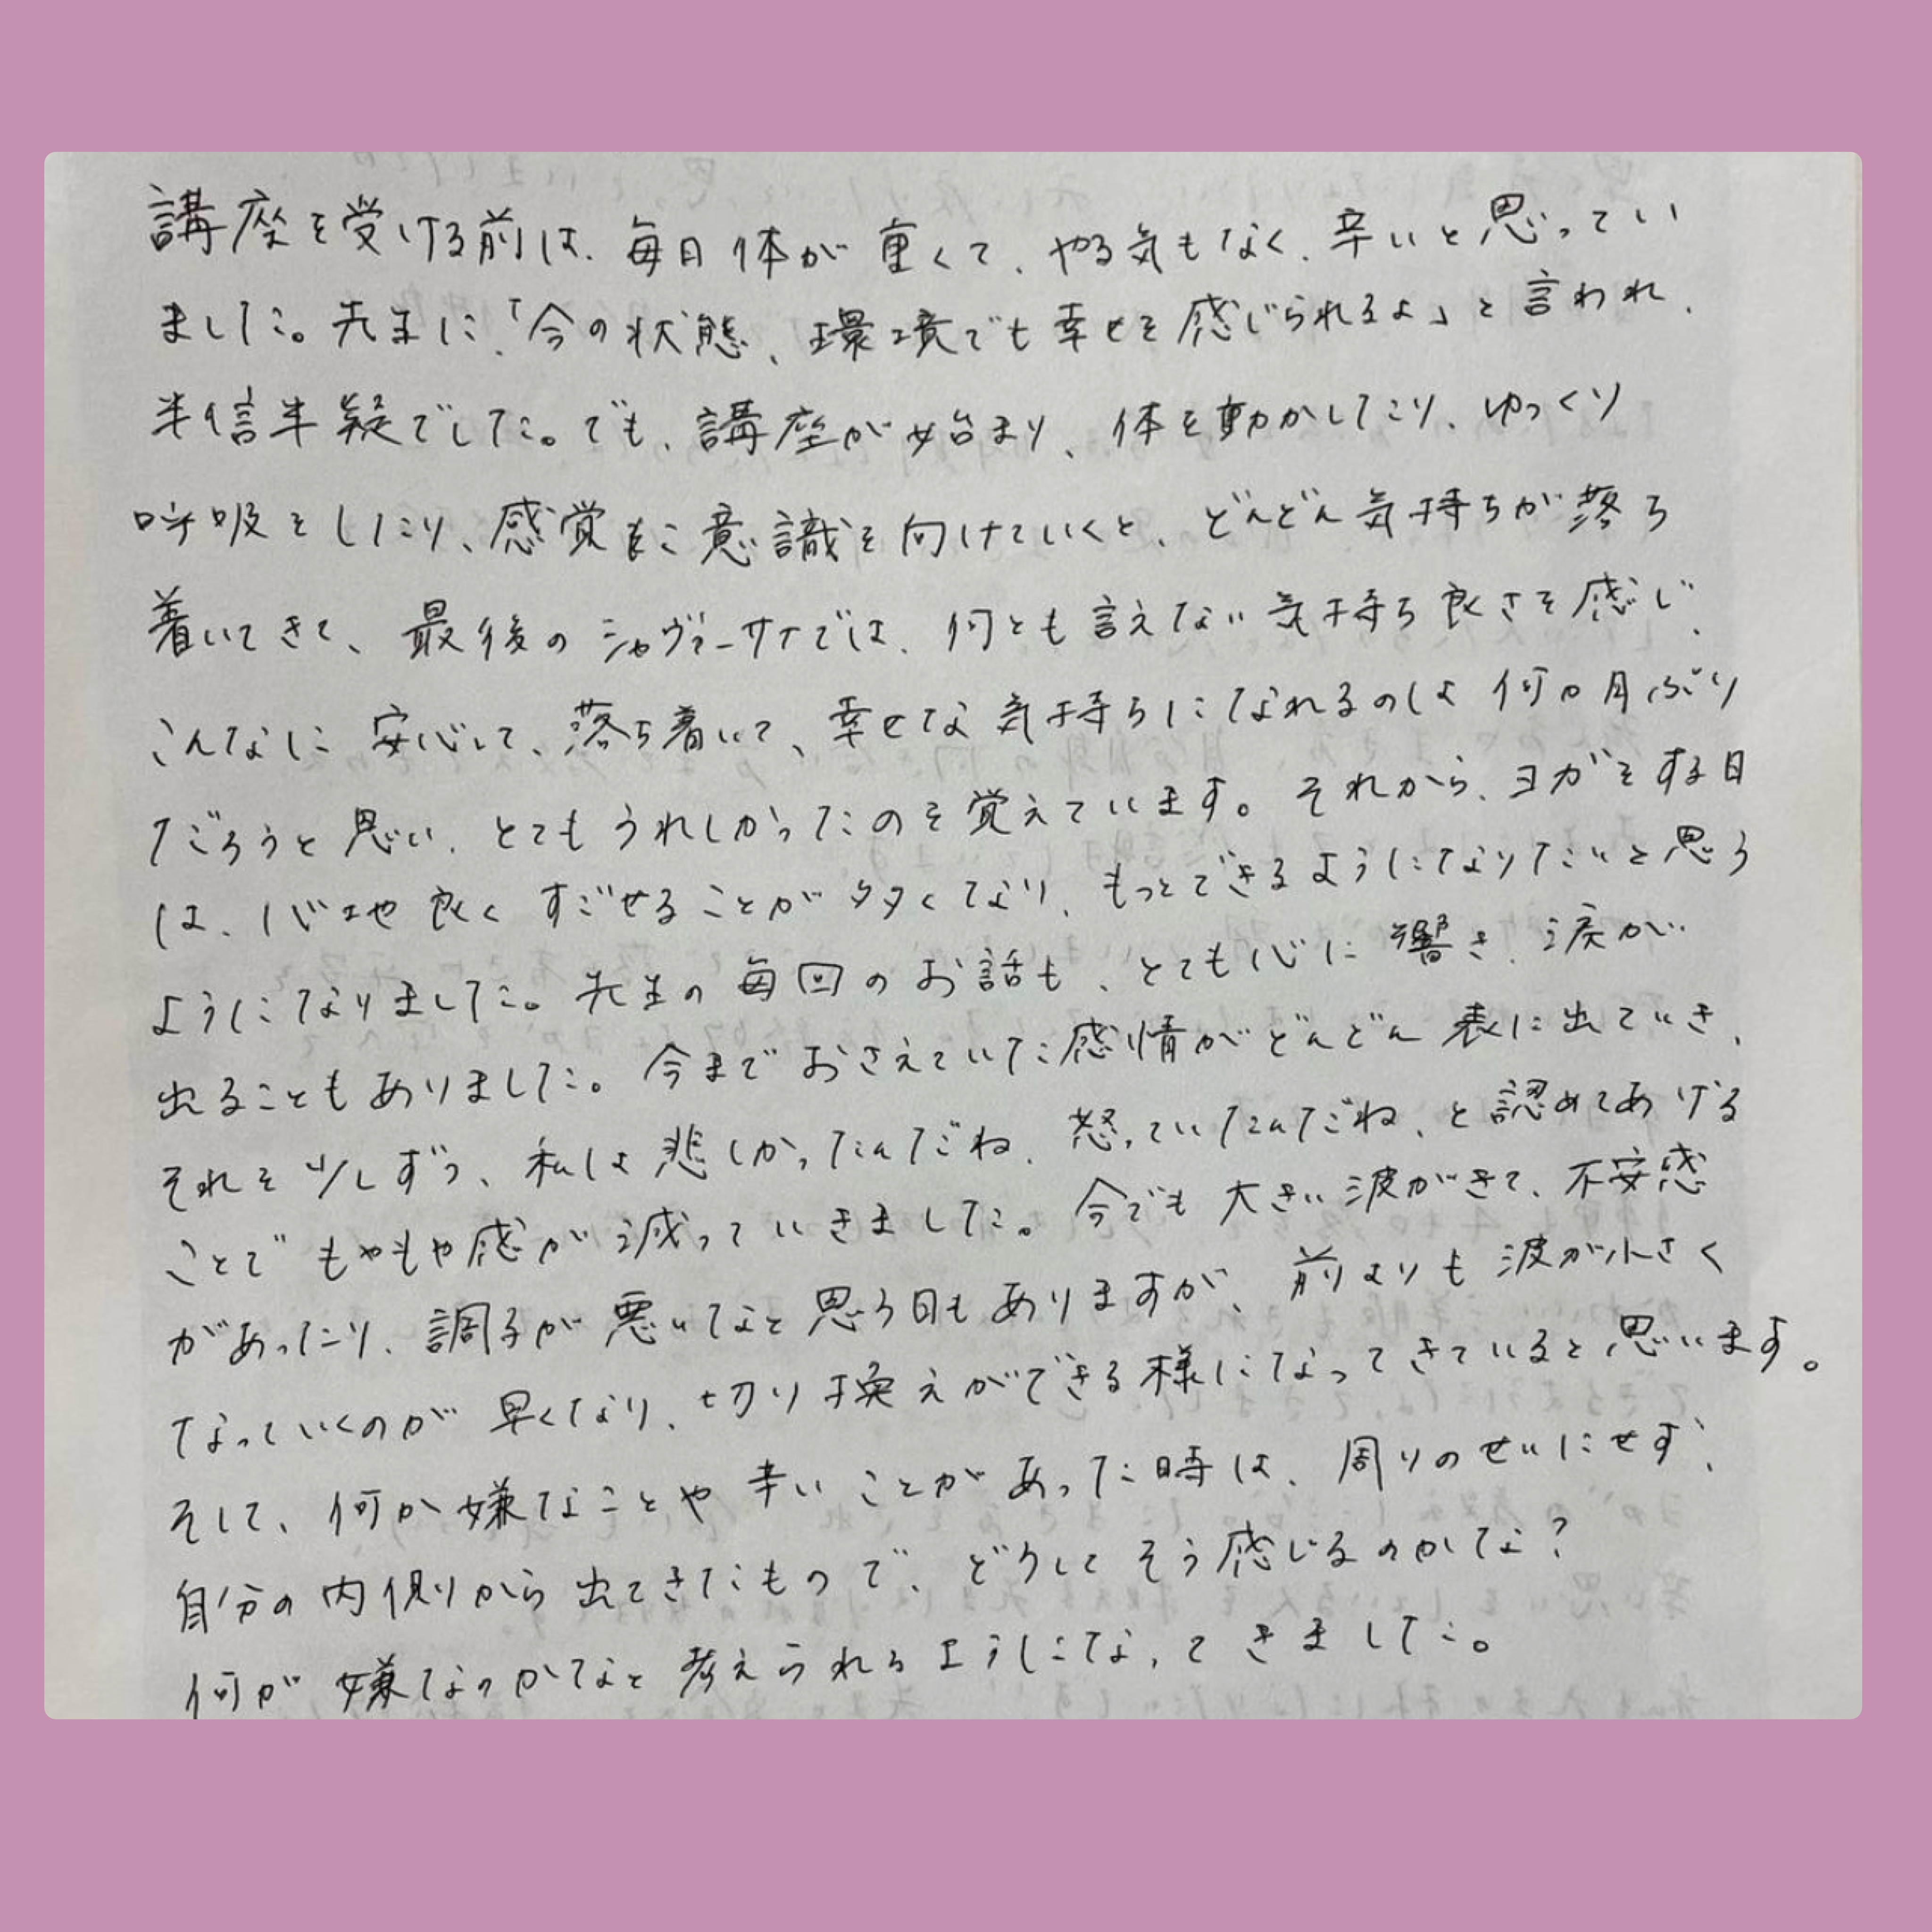 講座を受ける前は、毎日体が重くて、やる気もなく、辛いと思ってい
ました。先生に、「今の状態、環境でも幸せを感じられるよ」と言われ、
半信半疑でした。でも、講座が始まり、体を動かしたり、ゆっくり
呼吸をしたり、感覚に意識を向けていくと、どんどん気持ちが落ち
着いてきて、最後のシャヴァーサナでは、何とも言えない気持ち良さを感じ、
こんなに安心して、落ち着いて、幸せな気持ちになれるのは何か月ぶり
だろうと思い、とてもうれしかったのを覚えています。それから、ヨガをする日
は、心地良くすごせることが多くなり、もっとできるようになりたいと思う
ようになりました。先生の毎回のお話も、とても心に響き、涙が
出ることもありました。今までおさえていた感情がどんどん表に出ていき、
それを少しずつ、私は悲しかったんだね、怒っていたんだね、と認めてあげる
ことでもやもや感が減っていきました。今でも大きい波がきて、不安感
があったり、調子が悪いなと思う日もありますが、前よりも波が小さく
なっていくのが早くなり、切り換えができる様になってきていると思います。
そして、何か嫌なことや辛いことがあった時は、周りのせいにせず、
自分の内側から出てきたもので、どうしてそう感じるのかな?
何が嫌なのかなと考えられるようになってきました。